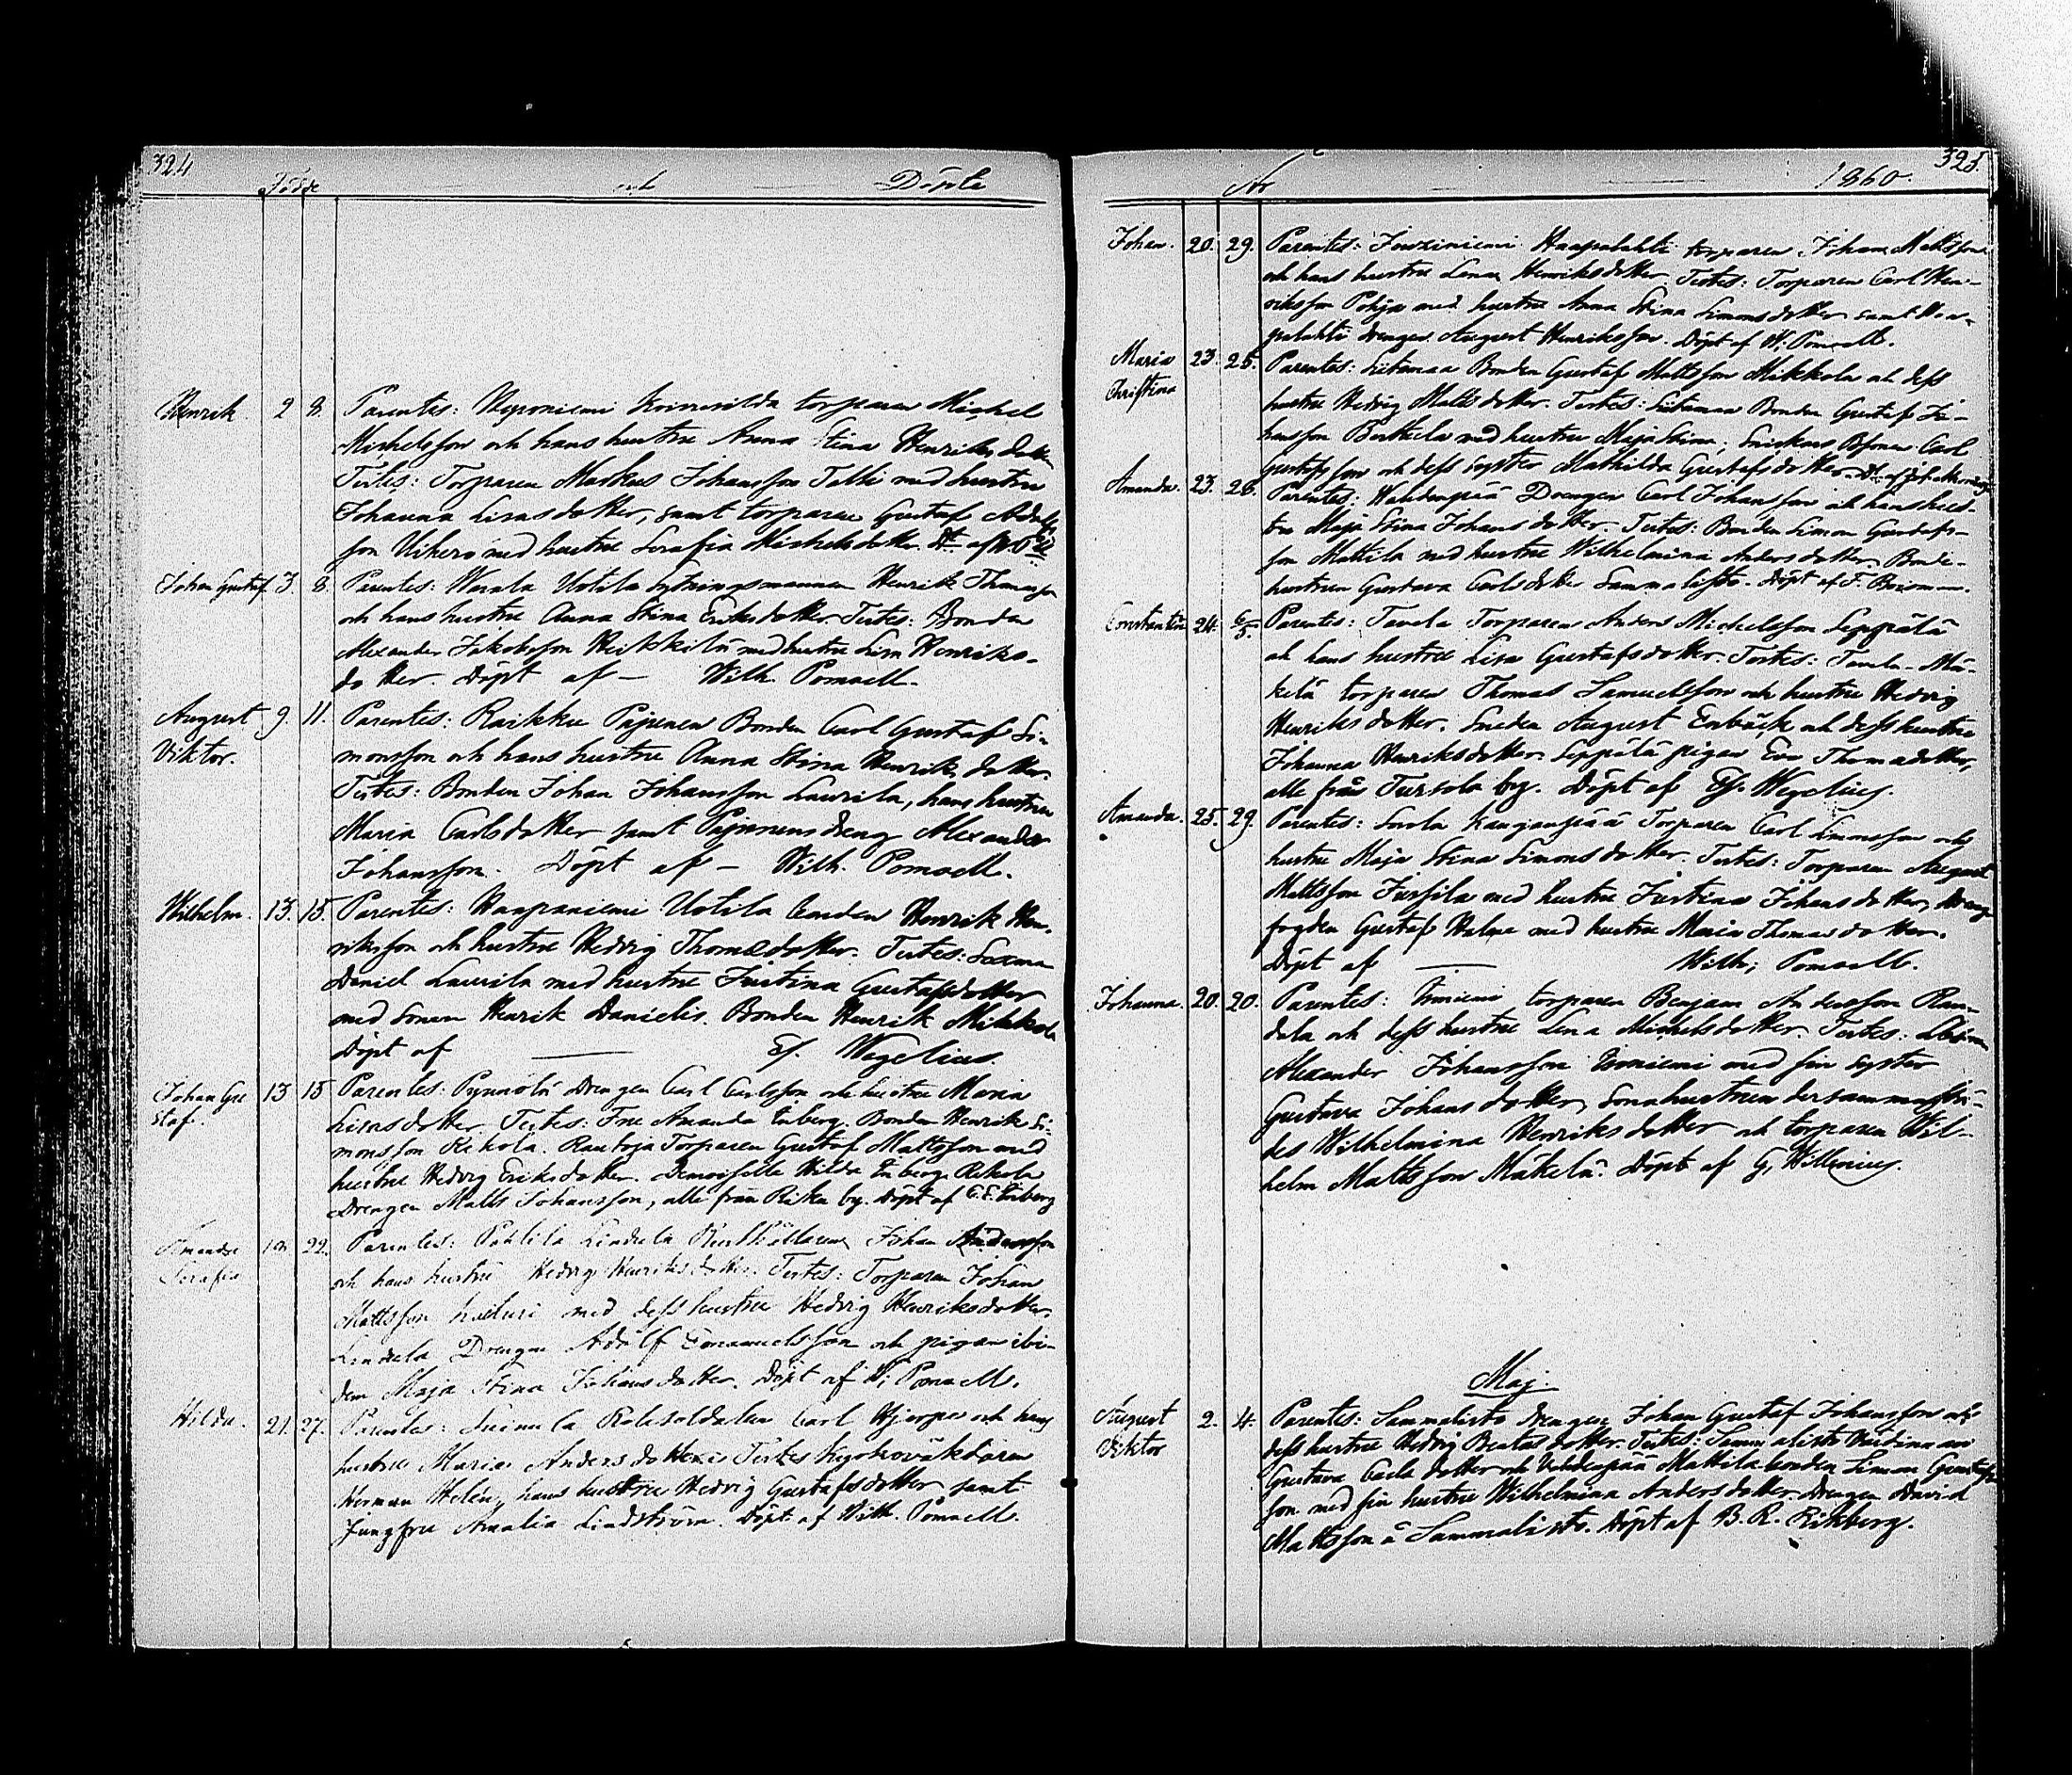 324
Födde och Döpte
Henrik. 2 8. Parentes: Koivusilda torparen Michel
Michelsson och hans hustru Anna Stina Henriksdotter
Testes: Torparen Markus Johansson Talli med hustru
Johanna Lisasdotter, samt torparen Gustaf Adolfs-
son Uikero med hustru Serafia Michelsdotter. Dt af W. P
Johan Gustaf 3. 8. Parentes: Uotila sytningsmannen Henrik Thomasson
och hans hustru Anna Stina Eriksdotter. Testes: Bonden
Alexander Jakobsson Heikkilä med hustru Lisa Henriks-
dotter. Döpt af — Wilh. Pomoell.
August 9. 11. Parentes: Raikku Pajunen Bonden Carl Gustaf Si-
Viktor.
monsson och hans hustru Anna Stina Henriksdotter.
Testes: Bonden Johan Johansson Laurila, hans hustru
Maria Carlsdotter samt Pajunens dreng Alexander
Johansson. Döpt af — Wilh. Pomoell.
Wilhelm. 13. 15. Parentes: Haapaniemi Uotila bonden Henrik Hen-
riksson och hustru Hedvig Thomædotter. Testes:
Daniel Laurila med hustru Justina Gustafsdotter
med sonen Henrik Danielis. Bonden Henrik Mikkola
Döpt af — Es. Wegelius.
Johan Gu 13 15 Parentes: drengen Carl Carlsson och hustru Maria
staf.
Lisasdotter. Testes: Fru Amanda Enberg. Bonden Henrik Si-
monsson Rekola. Rautoja Torparen Gustaf Mattsson med
hustru Hedvig Eriksdotter. Demoiselle Hilda Enberg. Rekola
Drengen Matts Johansson, alle från by. Döpt af E. E. Enberg
Amanda 22. Parentes: Pohlila Lindula Johan Andersson
Serafia
och hans hustru Hedvig Henriksdotter. Testes: Torparen Johan
Mattsson med dess hustru Hedvig Henriksdotter.
Lindula Drengen Adolf Emanuelsson och pigan ibi-
dem Maja Stina Johansdotter. Döpt af W. Pomoell.
Hilda. 21. 27. Parentes: Rotesoldaten Carl Hjerpe och hans
hustru Maria Andersdotter Testes Kyrkoväktaren
Herman Helén, hans hustru Hedvig Gustafsdotter samt
Jungfru Amalia Lindström. Döpt af Wilh. Pomoell.
325.
År 1860.
Johan. 20. 29. Parentes: Haapalahti torparen Johan Mattsson
och hans hustru Lena Henriksdotter. Testes: Torparen Carl Hen-
riksson Pohja med hustru Anna Stina Simonsdotter samt Haa-
palahti drengen August Henriksson. Döpt af W. Pomoell.
Maria 23. 25. Parentes: Liitsmaa Bonden Gustaf Mattsson Mikkola och dess
Christina
hustru Hedvig Mattsdotter. Testes: Bonden Gustaf Jo-
hansson Berttula med hustru Maja Stina; Carl
Gustafsson och dess syster Mathilda Gustafsdotter.
Amanda. 23. 26. Parentes: Drengen Carl Johansson och hans hust-
ru Maja Stina Johansdotter. Testes: Bonden Simon Gustafs-
son Mattila med hustru Wilhelmina Andersdotter, Bonde-
hustrun Gustava Carlsdotter Sammalisto. Döpt af F.
Constantin 24. 6/5. Parentes: Tavela Torparen Anders Michelsson Seppälä
och hans hustru Lisa Gustafsdotter. Testes: Tavela - Mä-
kelä torparen Thomas Samuelsson och hustru Hedvig
Henriksdotter. Smeden August Enbäck och dess hustru
Johanna Henriksdotter. Seppälä pigan Eva Thomædotter,
alle från Tursola by. Döpt af Es. Wegelius.
Amanda. 25. 29. Parentes: Sorola Kanganpää Torparen Carl Simonsson och
hustru Maja Stina Simonsdotter. Testes: Torparen August
Mattsson Jussila med hustru Justina Johansdotter, dreng-
fogden Gustaf Halme med hustru Maria Thomasdotter.
Döpt af — Wilh; Pomoell.
Johanna. 20. 20. Parentes: torparen Benjam Andersson Ran-
dala och dess hustru Lena Michelsdotter. Testes:
Alexander Johansson med sin syster
Gustava Johansdotter, sonahustrun dersammastä-
des Wilhelmina Henriksdotter och torparen Wil-
helm Mattsson Mäkelä. Döpt af G. Willenius.
Maj.
August 2. 4. Parentes: Sammalisto drengen Johan Gustaf Johansson och
Viktor
dess hustru Hedvig Beatasdotter. Testes: Sammalisto Värdinnan
Gustava Carlsdotter och Mattila bonden Simon Gustafs-
son med sin hustru Wilhelmina Andersdotter. Drengen David
Mattsson å Sammalisto. Döpt af B. R. Rikberg.